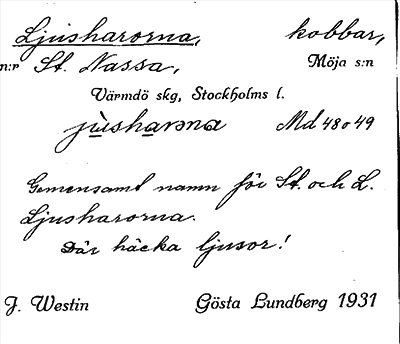 Ljusharorna, kobbar,
n:r St. Nassa, Möja s:n
Värmdö skg, Stockholms l.
jùsharɒna Md 48 o 49
Gemensamt namn för St. och L.
Ljusharorna.
Där häcka ljusor!
J. Westin Gösta Lundberg 1931